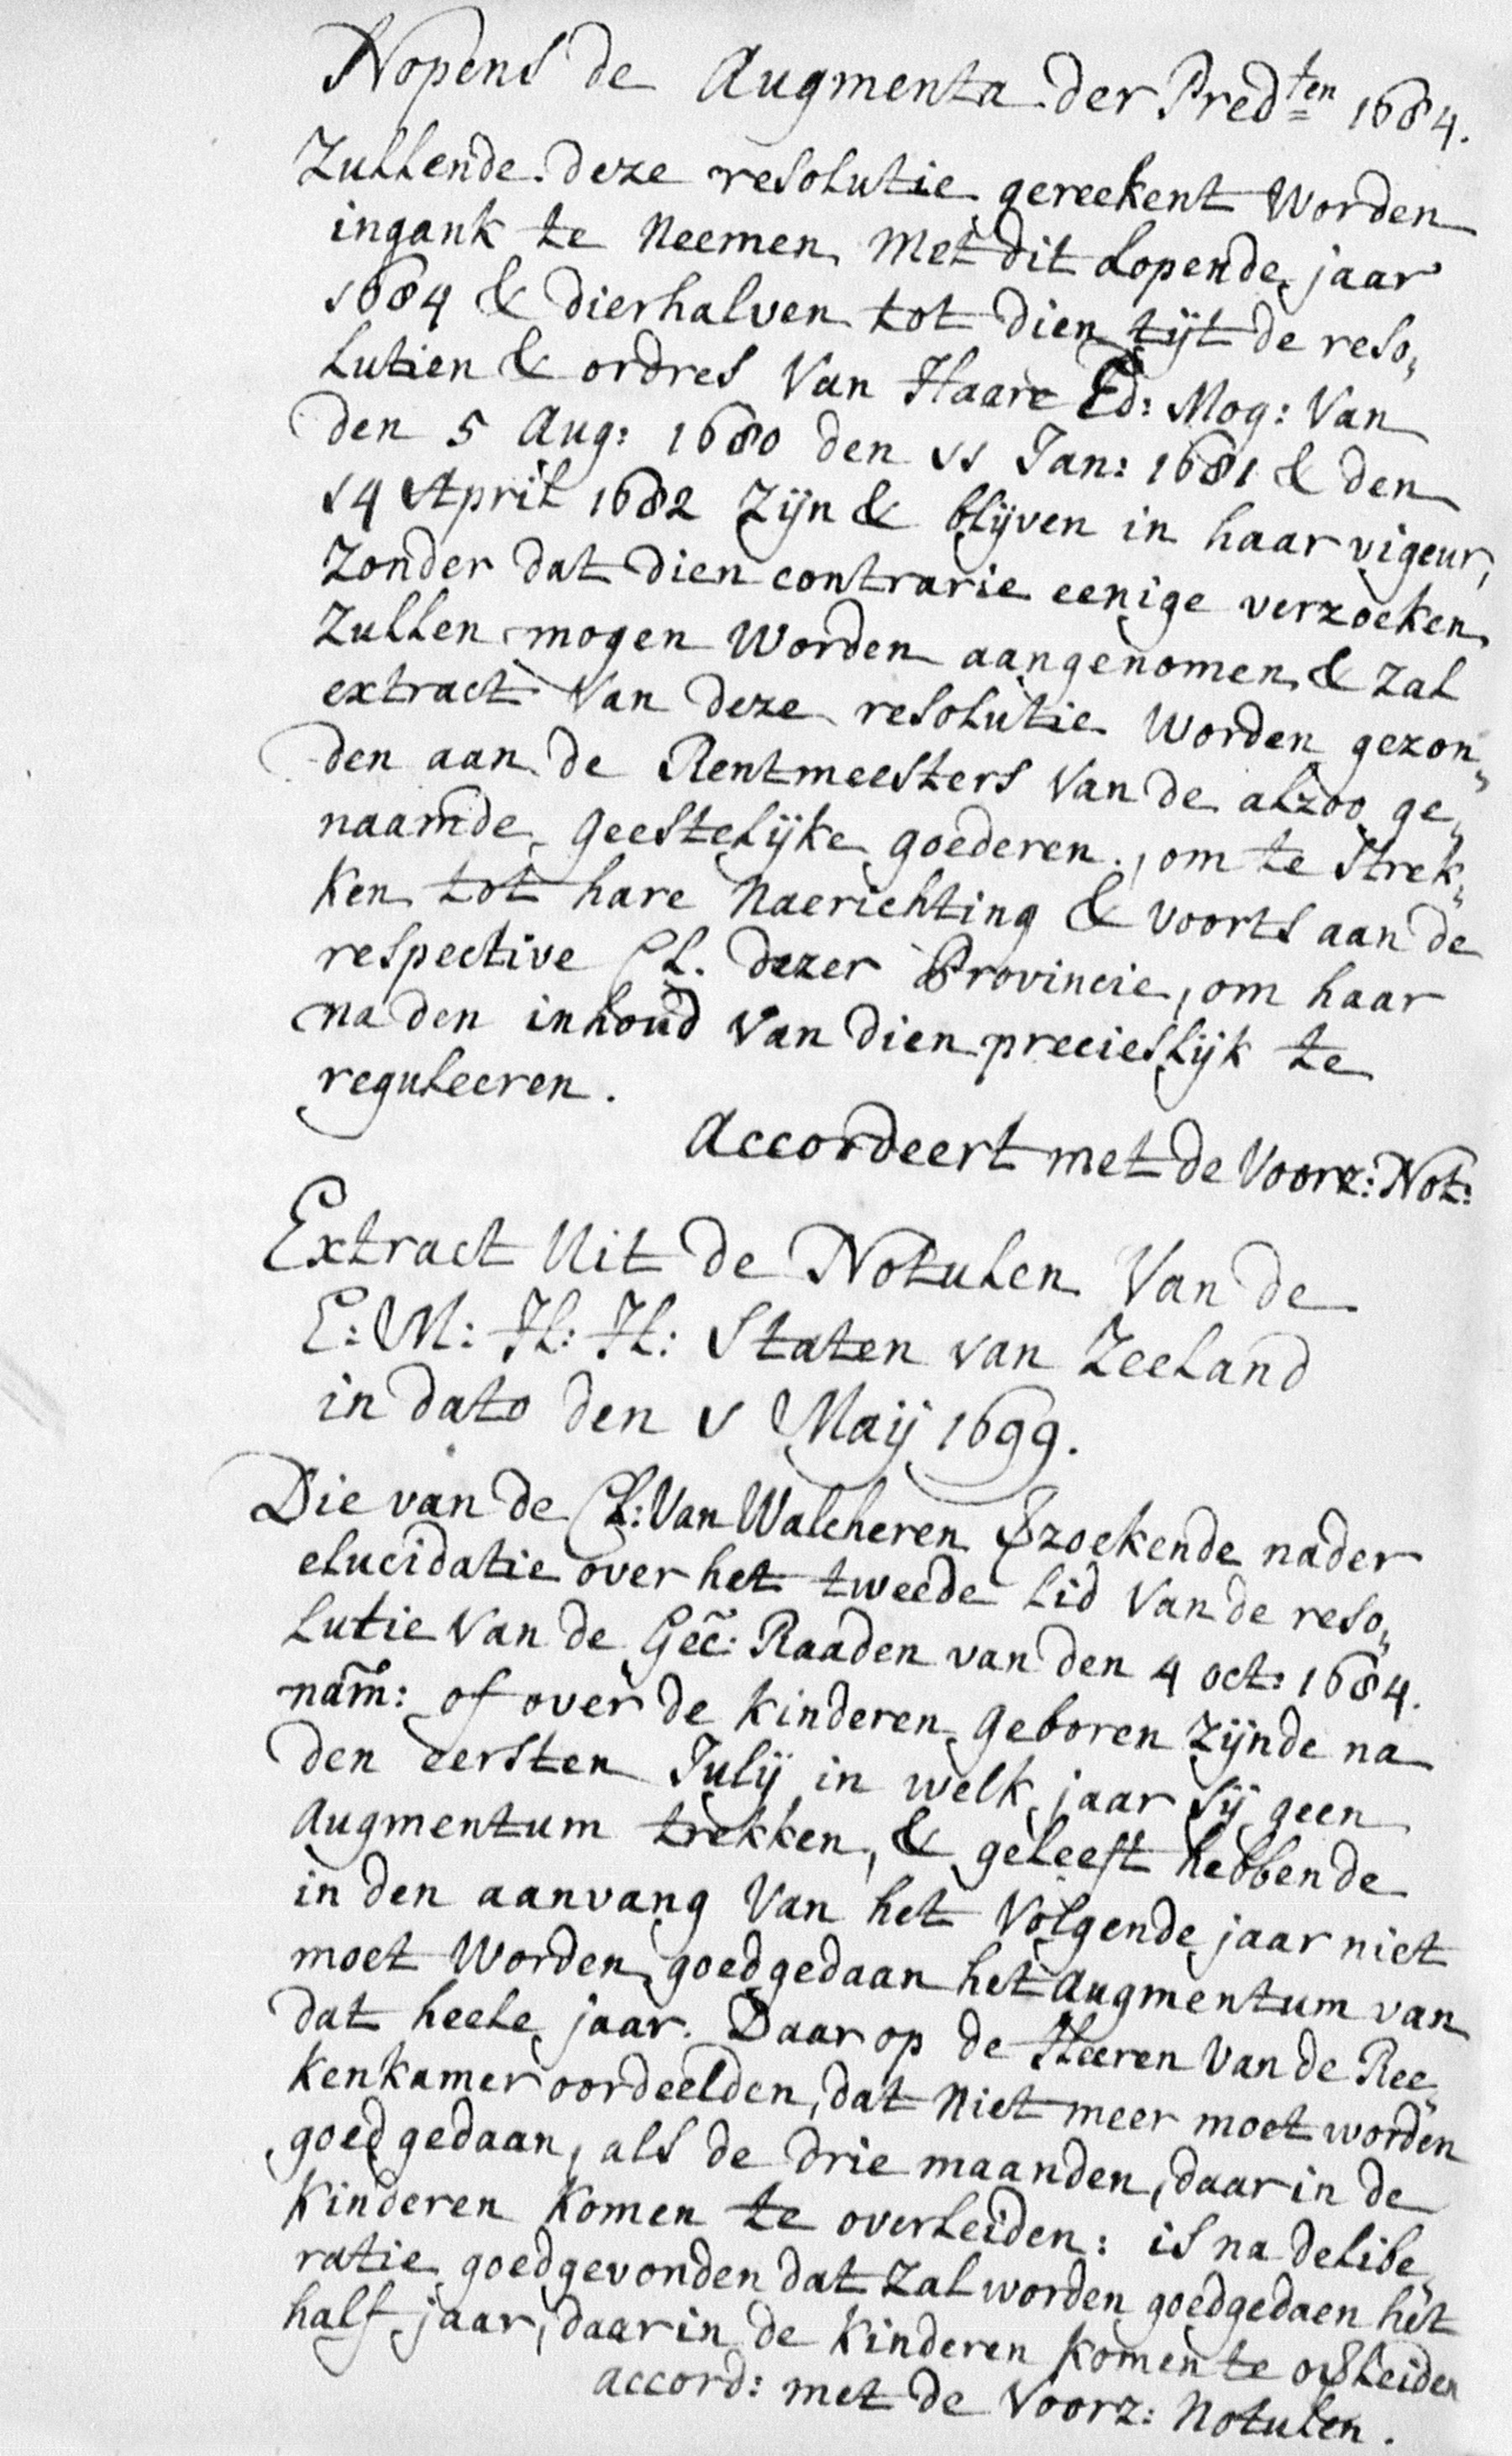 Nopens de Augmenta der Pred=ten 1684.
Zullende deze resolutie gereekent worden
ingank te neemen met dit lopende jaar
1684 & dierhalven tot dien tijt de reso„
lutien & ordres van Haare Ed: Mog: van
den 5 Aug: 1680 den 11 Jan: 1681 & den
14 April 1682 zijn & blijven in haar vigeur,
zonder dat dien contrarie eenige verzoeken
zullen mogen worden aangenomen & zal
extract van deze resolutie worden gezon„
den aan de Rentmeesters van de alzoo ge„
naamde geestelijke goederen, om te strek„
ken tot hare naerichting & voorts aan de
respective Cl. dezer Provincie, om haar
na den inhoud van dien precieslijk te
reguleeren.
Accordeert met de Voorz: Not:
Extract uit de Notulen van de
E: M: H: H: Staten van Zeeland
in dato den 1 Maij 1699.
Die van de Cl: van Walcheren vzoekende nader
elucidatie over het tweede lid van de reso„
lutie van de Gec̃: Raaden van den 4 oct: 1684.
nam̃: of over de kinderen geboren zijnde na
den eersten Julij in welk jaar sij geen
augmentum trekken, & geleeft hebbende
in den aanvang van het volgende jaar niet
moet worden goedgedaan het augmentum van
dat heele jaar. Daar op de Heeren van de Ree„
kenkamer oordeelden, dat niet meer moet worden
goed gedaan, als de drie maanden, daar in de
kinderen komen te overleiden: is na delibe„
ratie goedgevonden dat zal worden goedgedaen het
half jaar, daar in de kinderen komen te ovleiden
accord: met de voorz: Notulen.